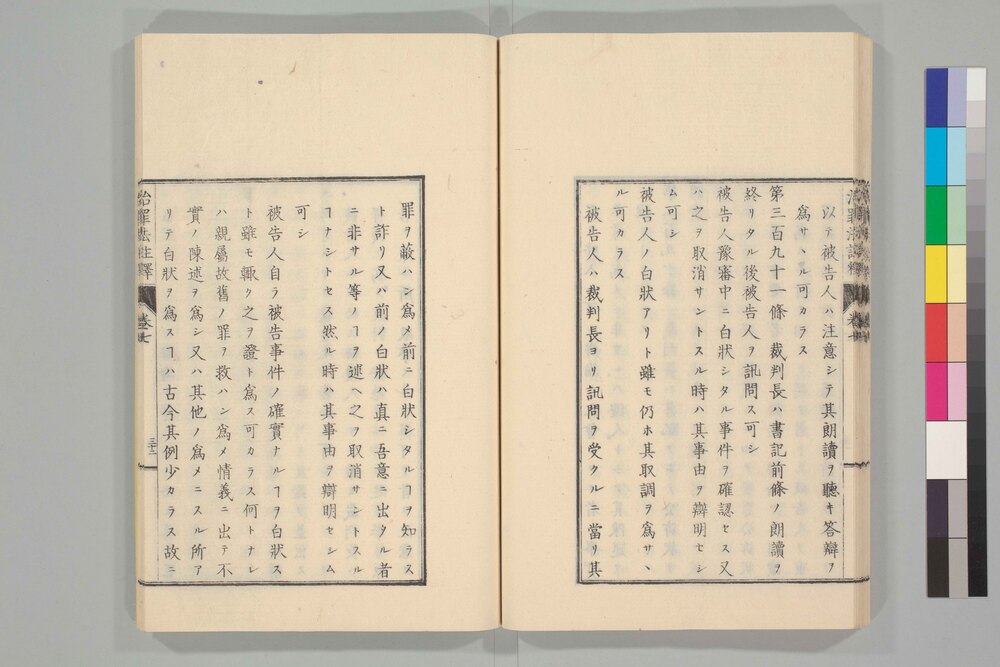 以テ被告人ハ注意シテ其朗讀ヲ聽キ答辯ヲ
爲サヽル可カラス
第三百九十一條 裁判長ハ書記前條ノ朗讀ヲ
終リタル後被告人ヲ訊問ス可シ
被告人豫審中ニ白狀シタル事件ヲ確認セス又
ハ之ヲ取消サントスル時ハ其事由ヲ辯明セシ
ム可シ
被告人ノ白狀アリト雖モ仍ホ其取調ヲ爲サヽ
ル可カラス
被告人ハ裁判長ヨリ訊問ヲ受クルニ當リ其
罪ヲ蔽ハン爲メ前ニ白狀シタルヿヲ知ラス
ト詐リ又ハ前ノ白狀ハ真ニ吾意ニ出タル者
ニ非サル等ノヿヲ述ヘ之ヲ取消サントスル
ヿナシトセス然ル時ハ其事由ヲ辯明セシム
可シ
被告人自ラ被告事件ノ確實ナルヿヲ白狀ス
ト雖モ輙ク之ヲ證ト爲ス可カラス何トナレ
ハ親屬故舊ノ罪ヲ救ハン爲メ情義ニ出テ不
實ノ陳述ヲ爲シ又ハ其他ノ爲メニスル所ア
リテ白狀ヲ爲スヿハ古今其例少カラス故ニ
治罪法註釋
卷七